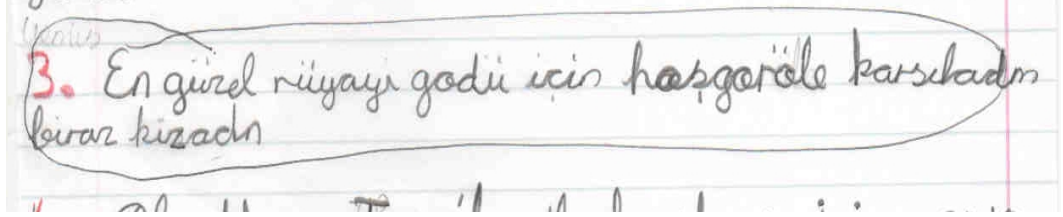 3. En güzel rüyayı godü için hoşgoröle karsıladım
biraz kızadn